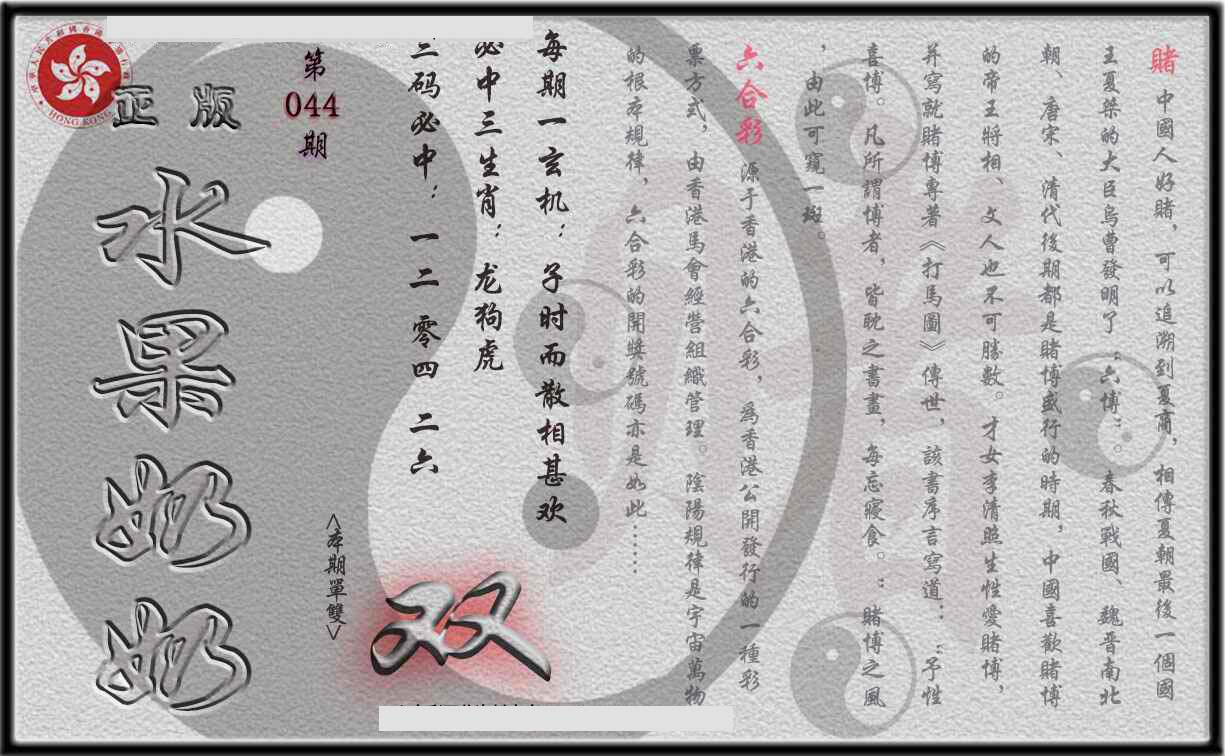 賭 中國人好賭，可以追溯到夏商，相傳夏朝最後一個國
王夏桀的大臣烏曹發明了“六博”。春秋戰國、魏晋南北
朝、唐宋、清代後期都是賭博盛行的時期，中國喜歡賭博
的帝王將相、文人也不可勝數。才女李清照生性愛賭博，
并寫就賭博專著《打馬圖》傳世，該書序言寫道：“予性
喜博。凡所謂博者，皆耽之晝，每忘寢食。”賭博之風
，由此可窺一斑。
六合彩 源于香港的六合彩，為香港公開發行的一種彩
票方式，由香港馬會經營組織管理。陰陽規律是宇宙萬物
的根本規律，六合彩的開獎號碼亦是如此……
每期一玄机：子时而散相甚欢
必中三生肖：龙狗虎
三码必中：一二 零四 二六
双
<本期單雙>
第
044
期
正版
水果奶奶
HONG KONG